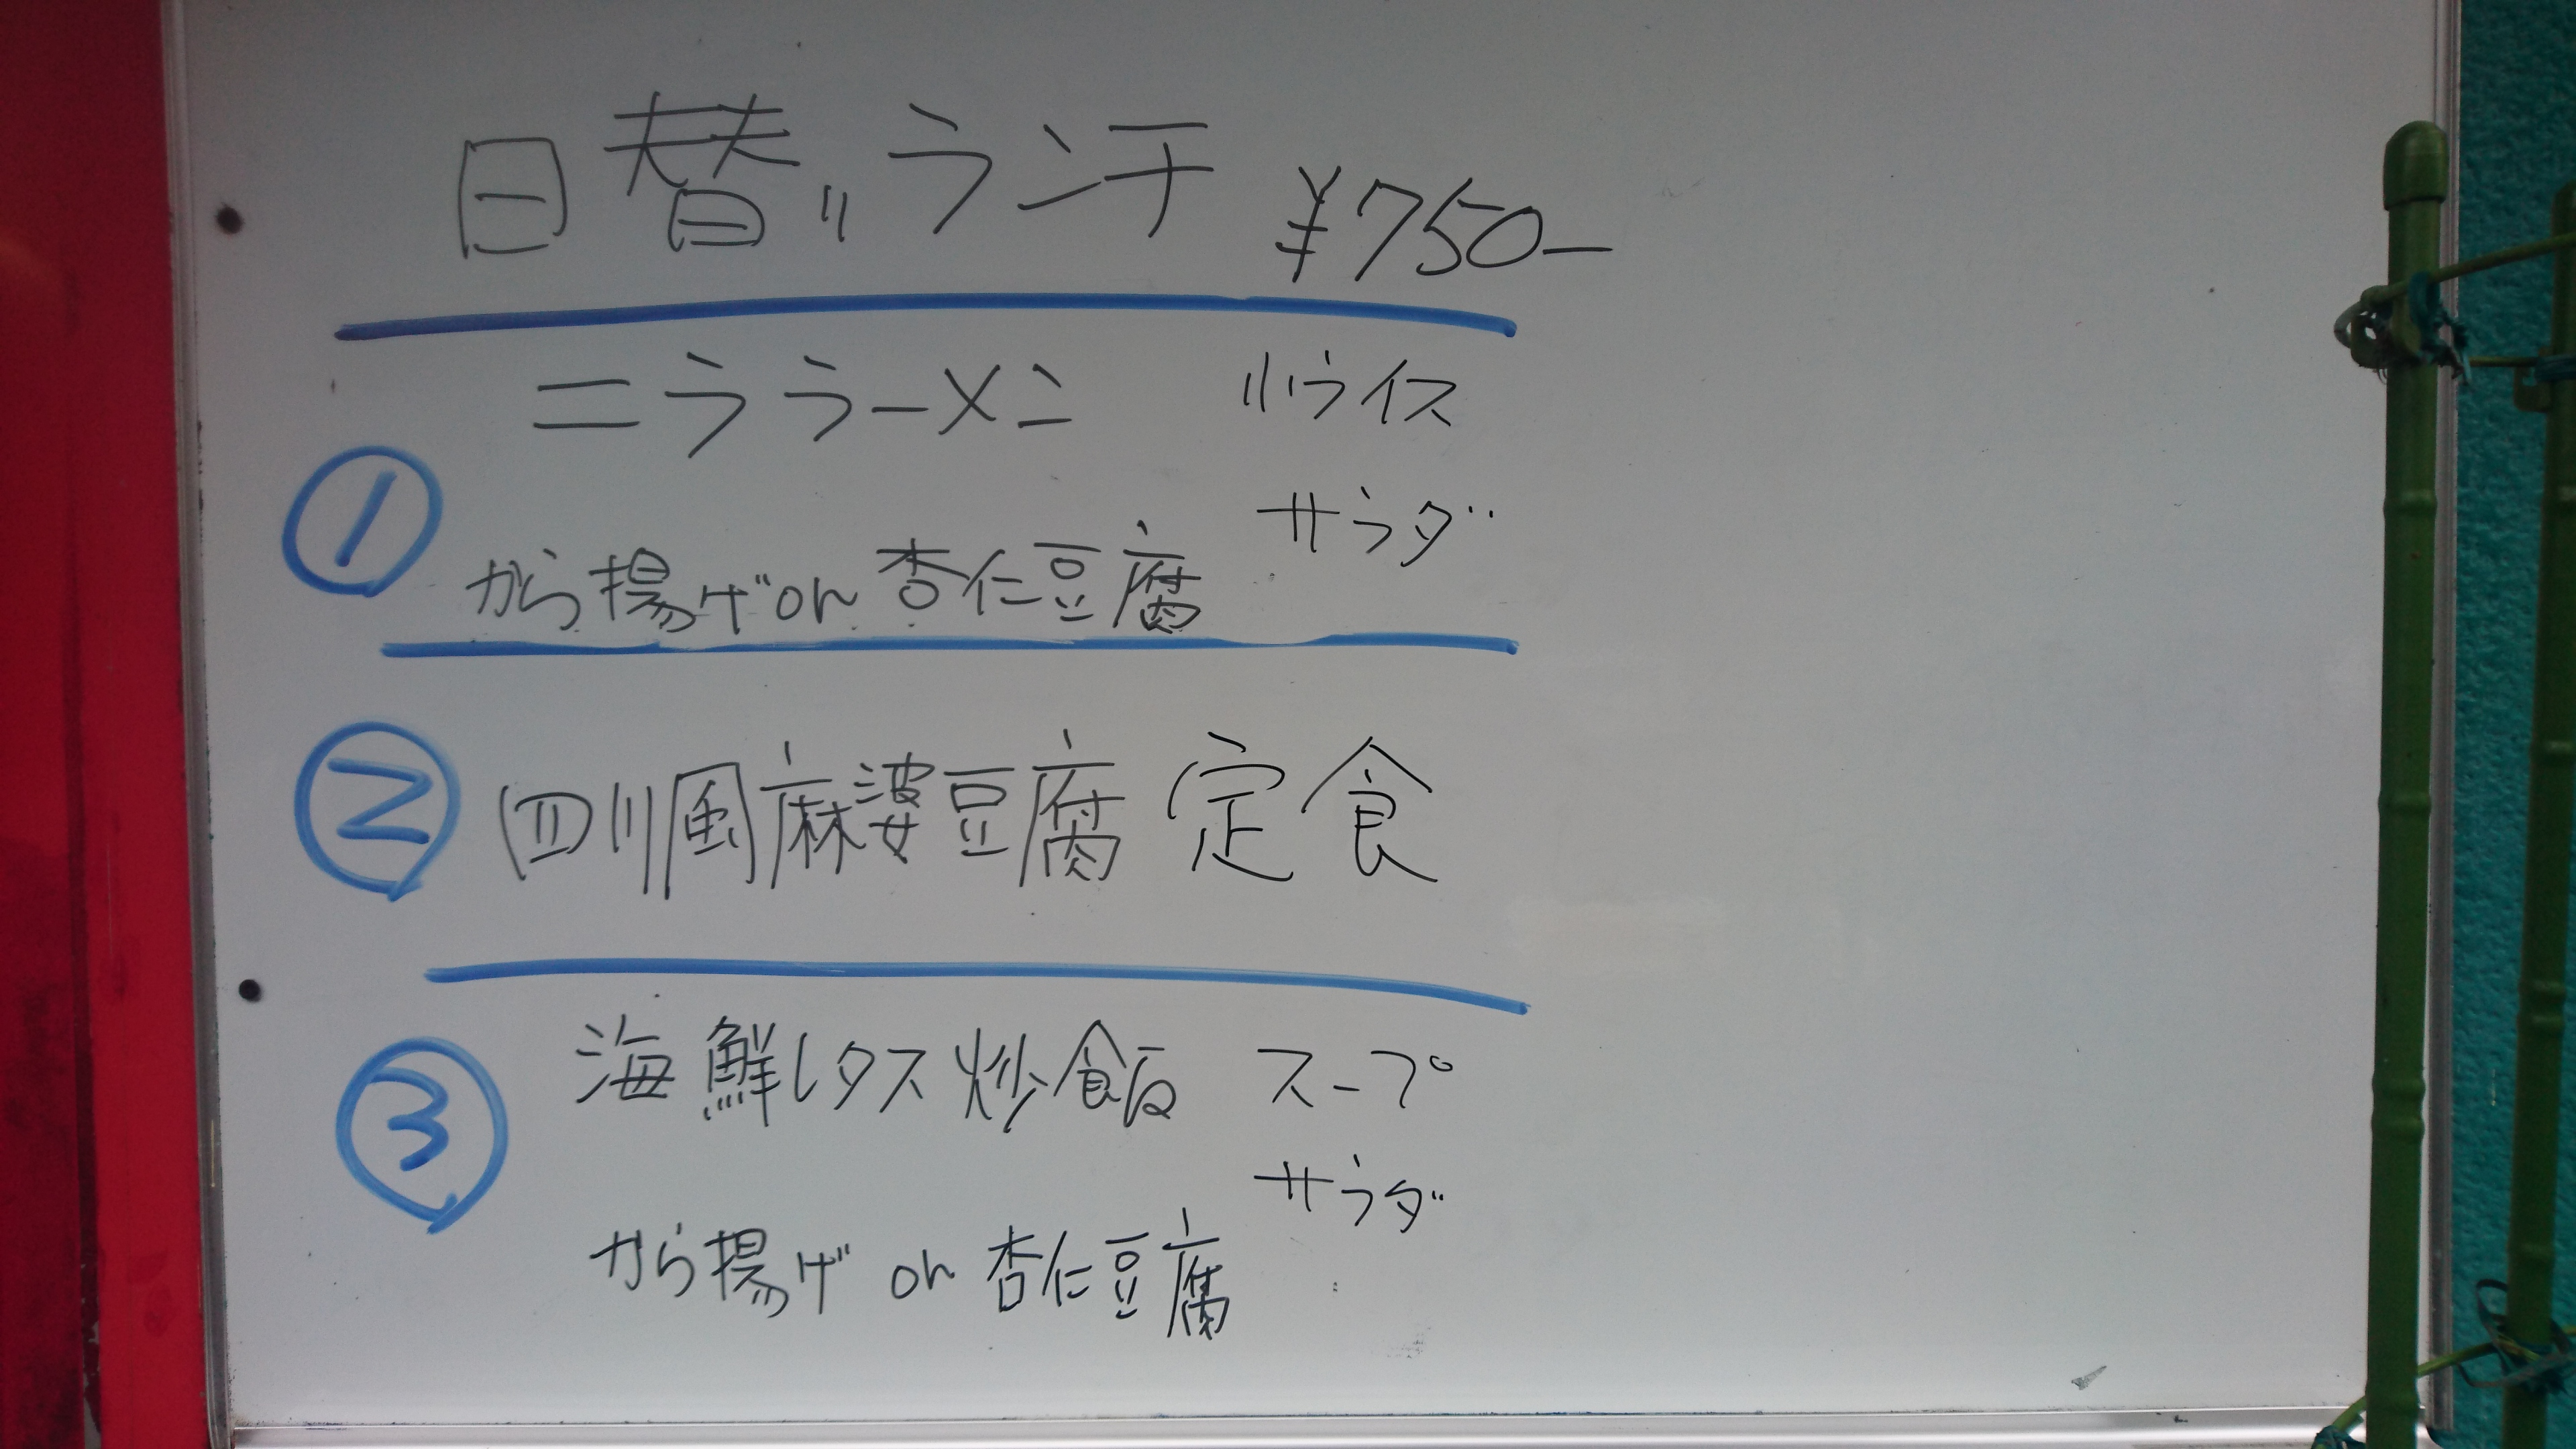 日替りランチ ¥750-
ニララーメン 小ライス
① サラダ
から揚げor杏仁豆腐
② 四川風麻婆豆腐 定食
海鮮レタス炒飯 スープ
③ サラダ
から揚げ or 杏仁豆腐